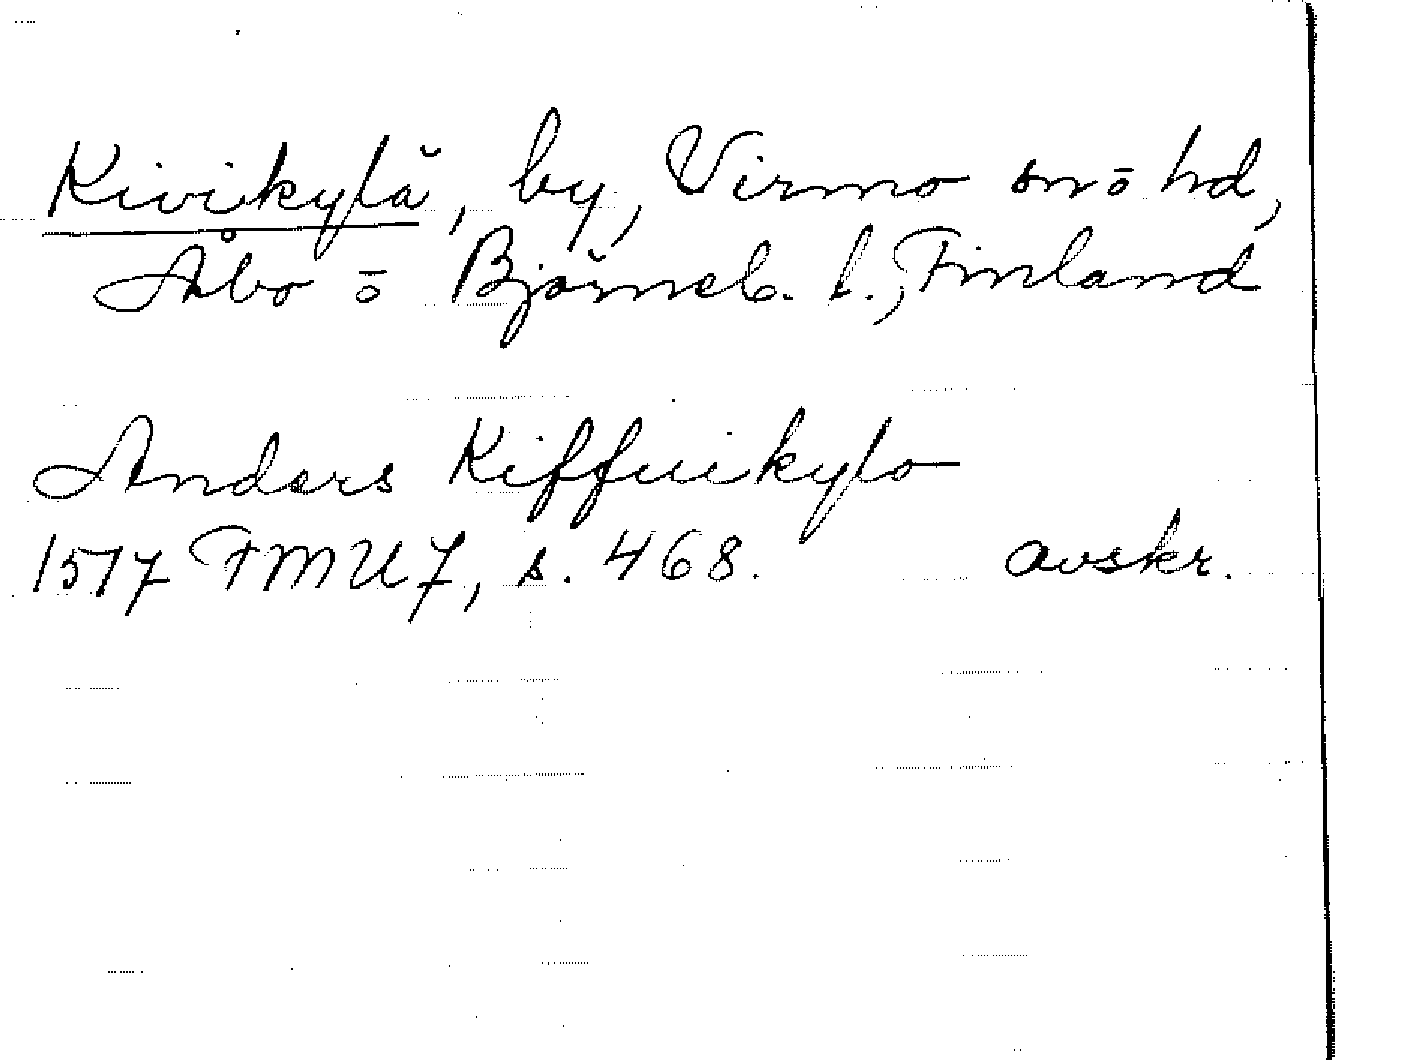 Kivikylä, by, Virmo sn ö hd,
Åbo ö Björneb. l., Finland
Anders Kiffuikylo
1517 FMU 7, s. 468. avskr.